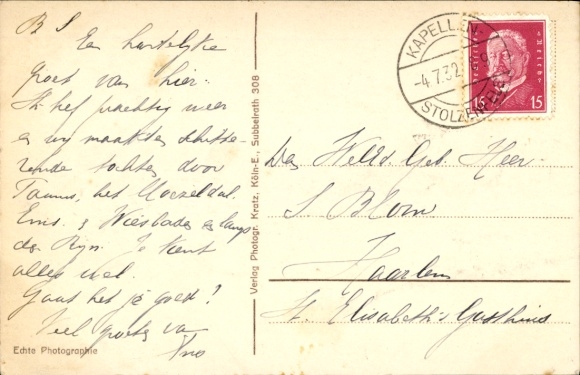 B S
Een hartelijke
groet van hier.
Ik heb prachtig weer
en wij maakten schitte-
rende tochten door
Taunus, het Moezeldal.
Ems. & Wiesbaden en langs
den Rijn. Je kent
alles wel.
Gaat het je goed?
Veel groeten van
Echte Photographie
Verlag Photogr. Kratz, Köln-E., Subbelrath 308
KAPELLEN-
-4.7.32
STOLZENFELS
15 15
Den WelEd. Geb. Heer.
S Blom
Haarlem
St. Elisabeth's Gasthuis